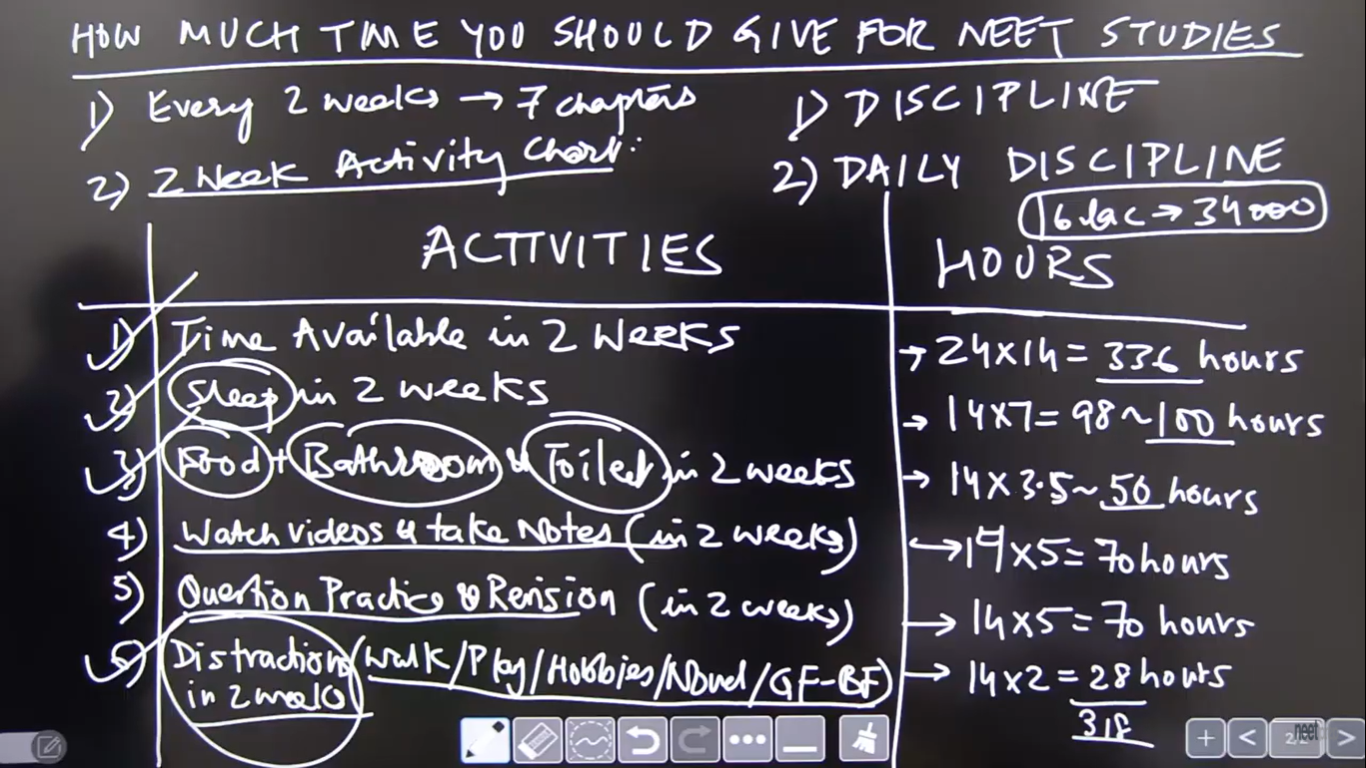 HOW MUCH TIME YOU SHOULD GIVE FOR NEET STUDIES
1) Every 2 weeks → 7 chapters
2) 2 Week Activity Chart:
1) DISCIPLINE
2) DAILY DISCIPLINE
16 lac → 34000
ACTIVITIES HOURS
1) Time Available in 2 Weeks → 24×14 = 336 hours
2) Sleep in 2 weeks → 14×7 = 98 ~ 100 hours
3) Food + Bathroom & Toilet in 2 weeks → 14×3.5 ~ 50 hours
4) Watch videos & take Notes (in 2 weeks) → 14×5 = 70 hours
5) Question Practice & Revision (in 2 weeks) → 14×5 = 70 hours
6) Distraction in 2 weeks (Walk/Play/Hobbies/Novel/GF-BF) → 14×2 = 28 hours
318
neet